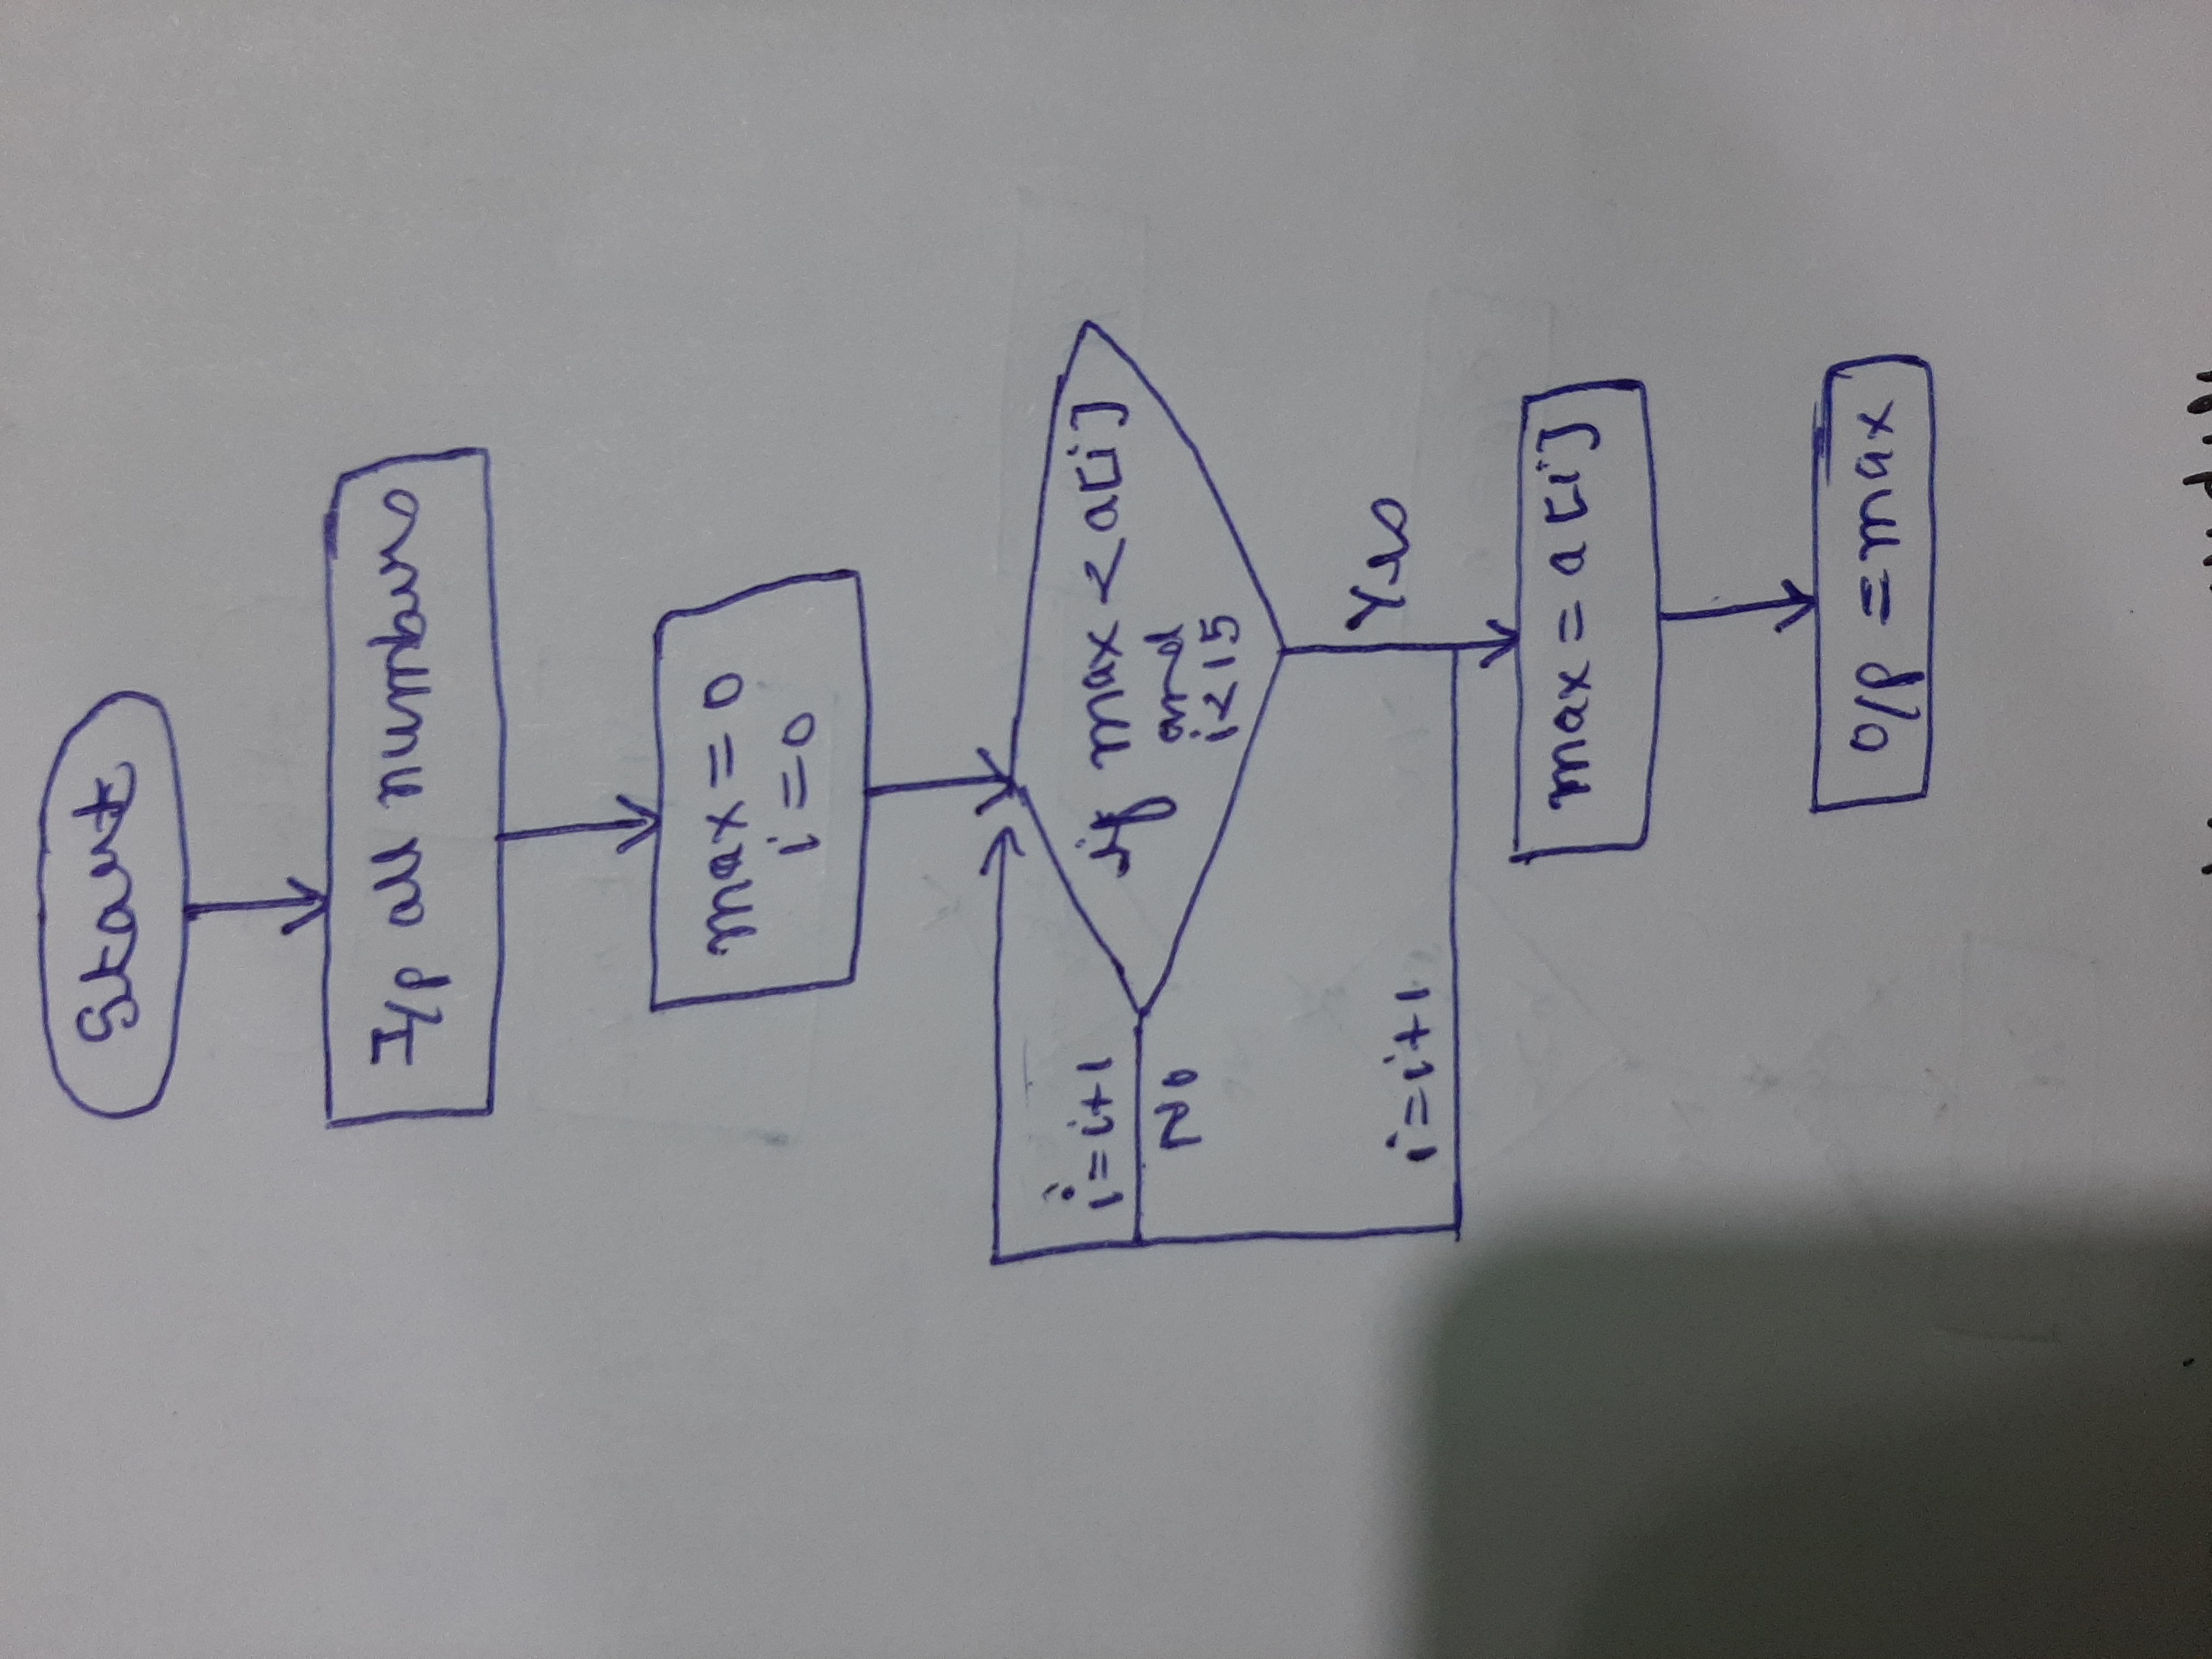 Start
I/p all numbers
max = 0
i = 0
i = i+1
No
if max < a[i]
and
i<15
Yes
i = i+1
max = a[i]
O/p = max